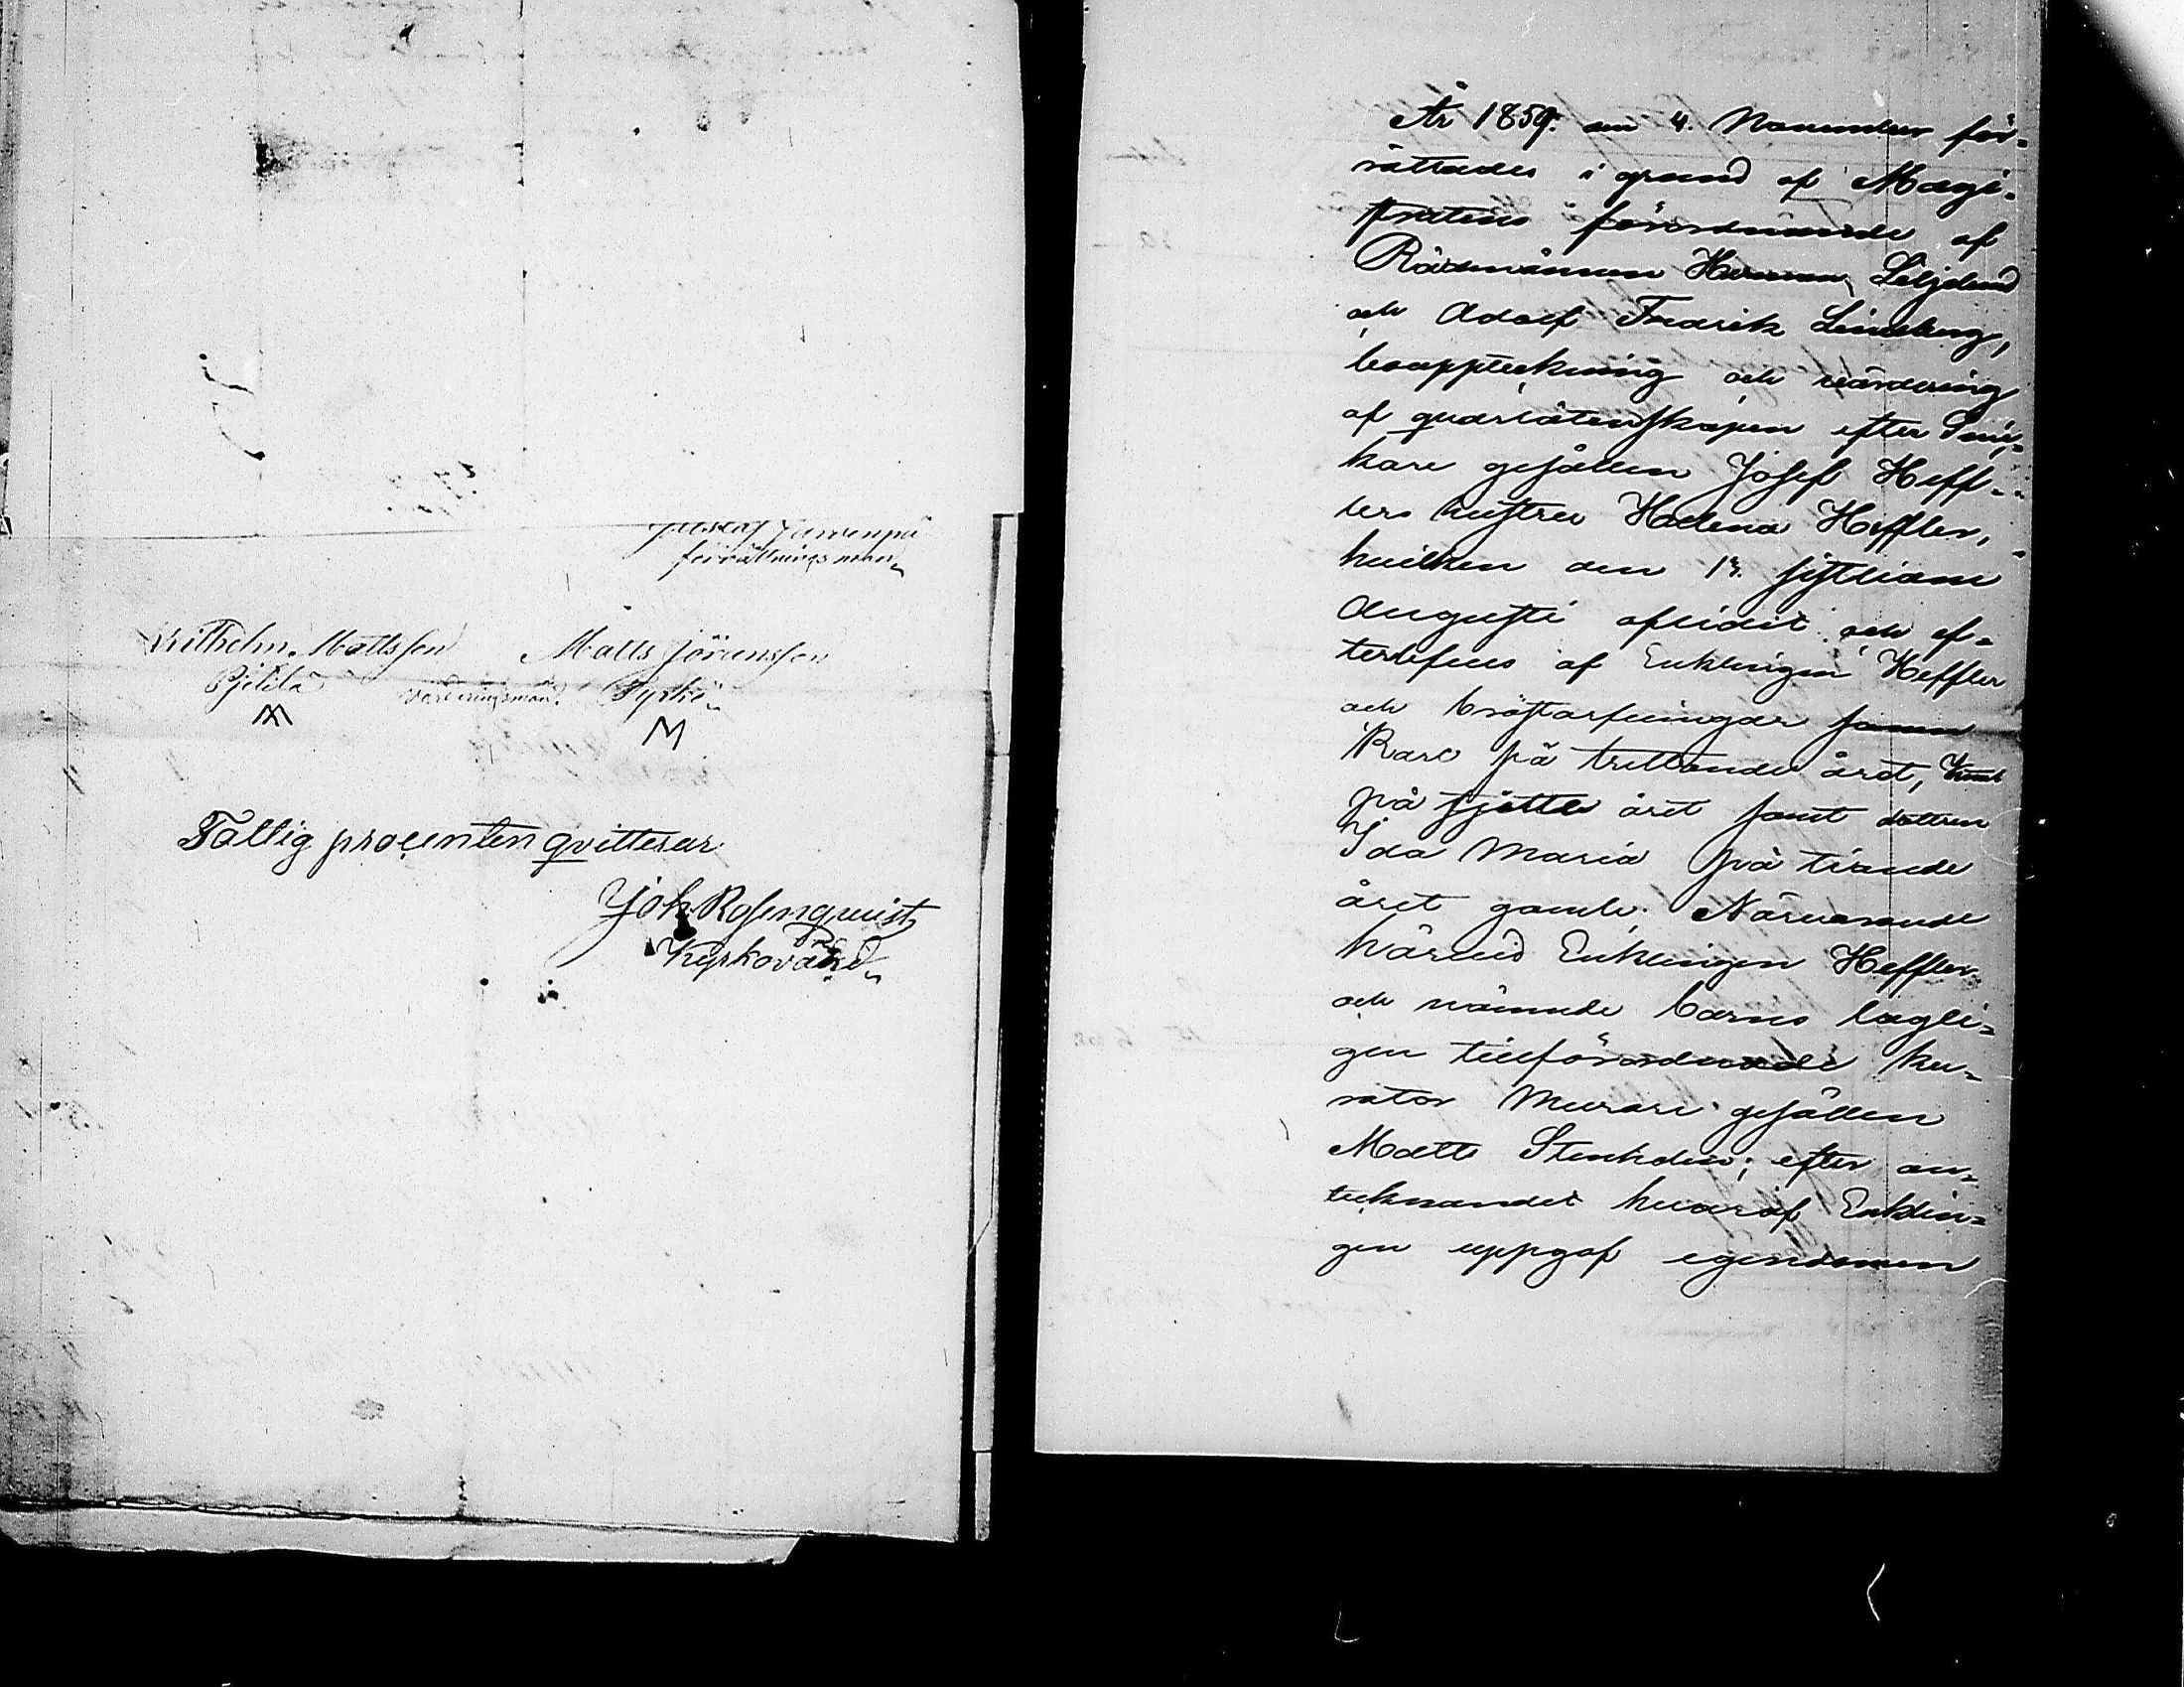 Gustaf Jarrenpä
förrättningsman
Wilhelm Mattsson Matts Jöransson
Pjelilä Värderingsmän. Pyrkö
M
Fattig procenten qvitteras
Joh Rosenqvist
Kyrkovärd
År 1859. den 4. November för-
rättades i grund af Magi-
stratens förordnande af
Rådmännen Herman Liljelund
och Adolf Fredrik Lindberg,
bouppteckning och värdering
af quarlåtenskapen efter Snic-
kare gesällen Josef Heff-
lers hustru Helena Heffler,
hvilken den 13. sistlidne
Augusti aflidit och ef-
terlefves af Enklingen Heffler
och bröstarfvingar sonen
Karl på trettonde året, Knut
på sjette året samt dottren
Ida Maria på tionde
året gamle. Närvarande
härvid Enklingen Heffler
och nämnde barns lagli-
gen tillförordnade ku-
rator Murare gesällen
Matts Stenholm; efter an-
tecknandet hvaraf Enklin-
gen uppgaf egendomen